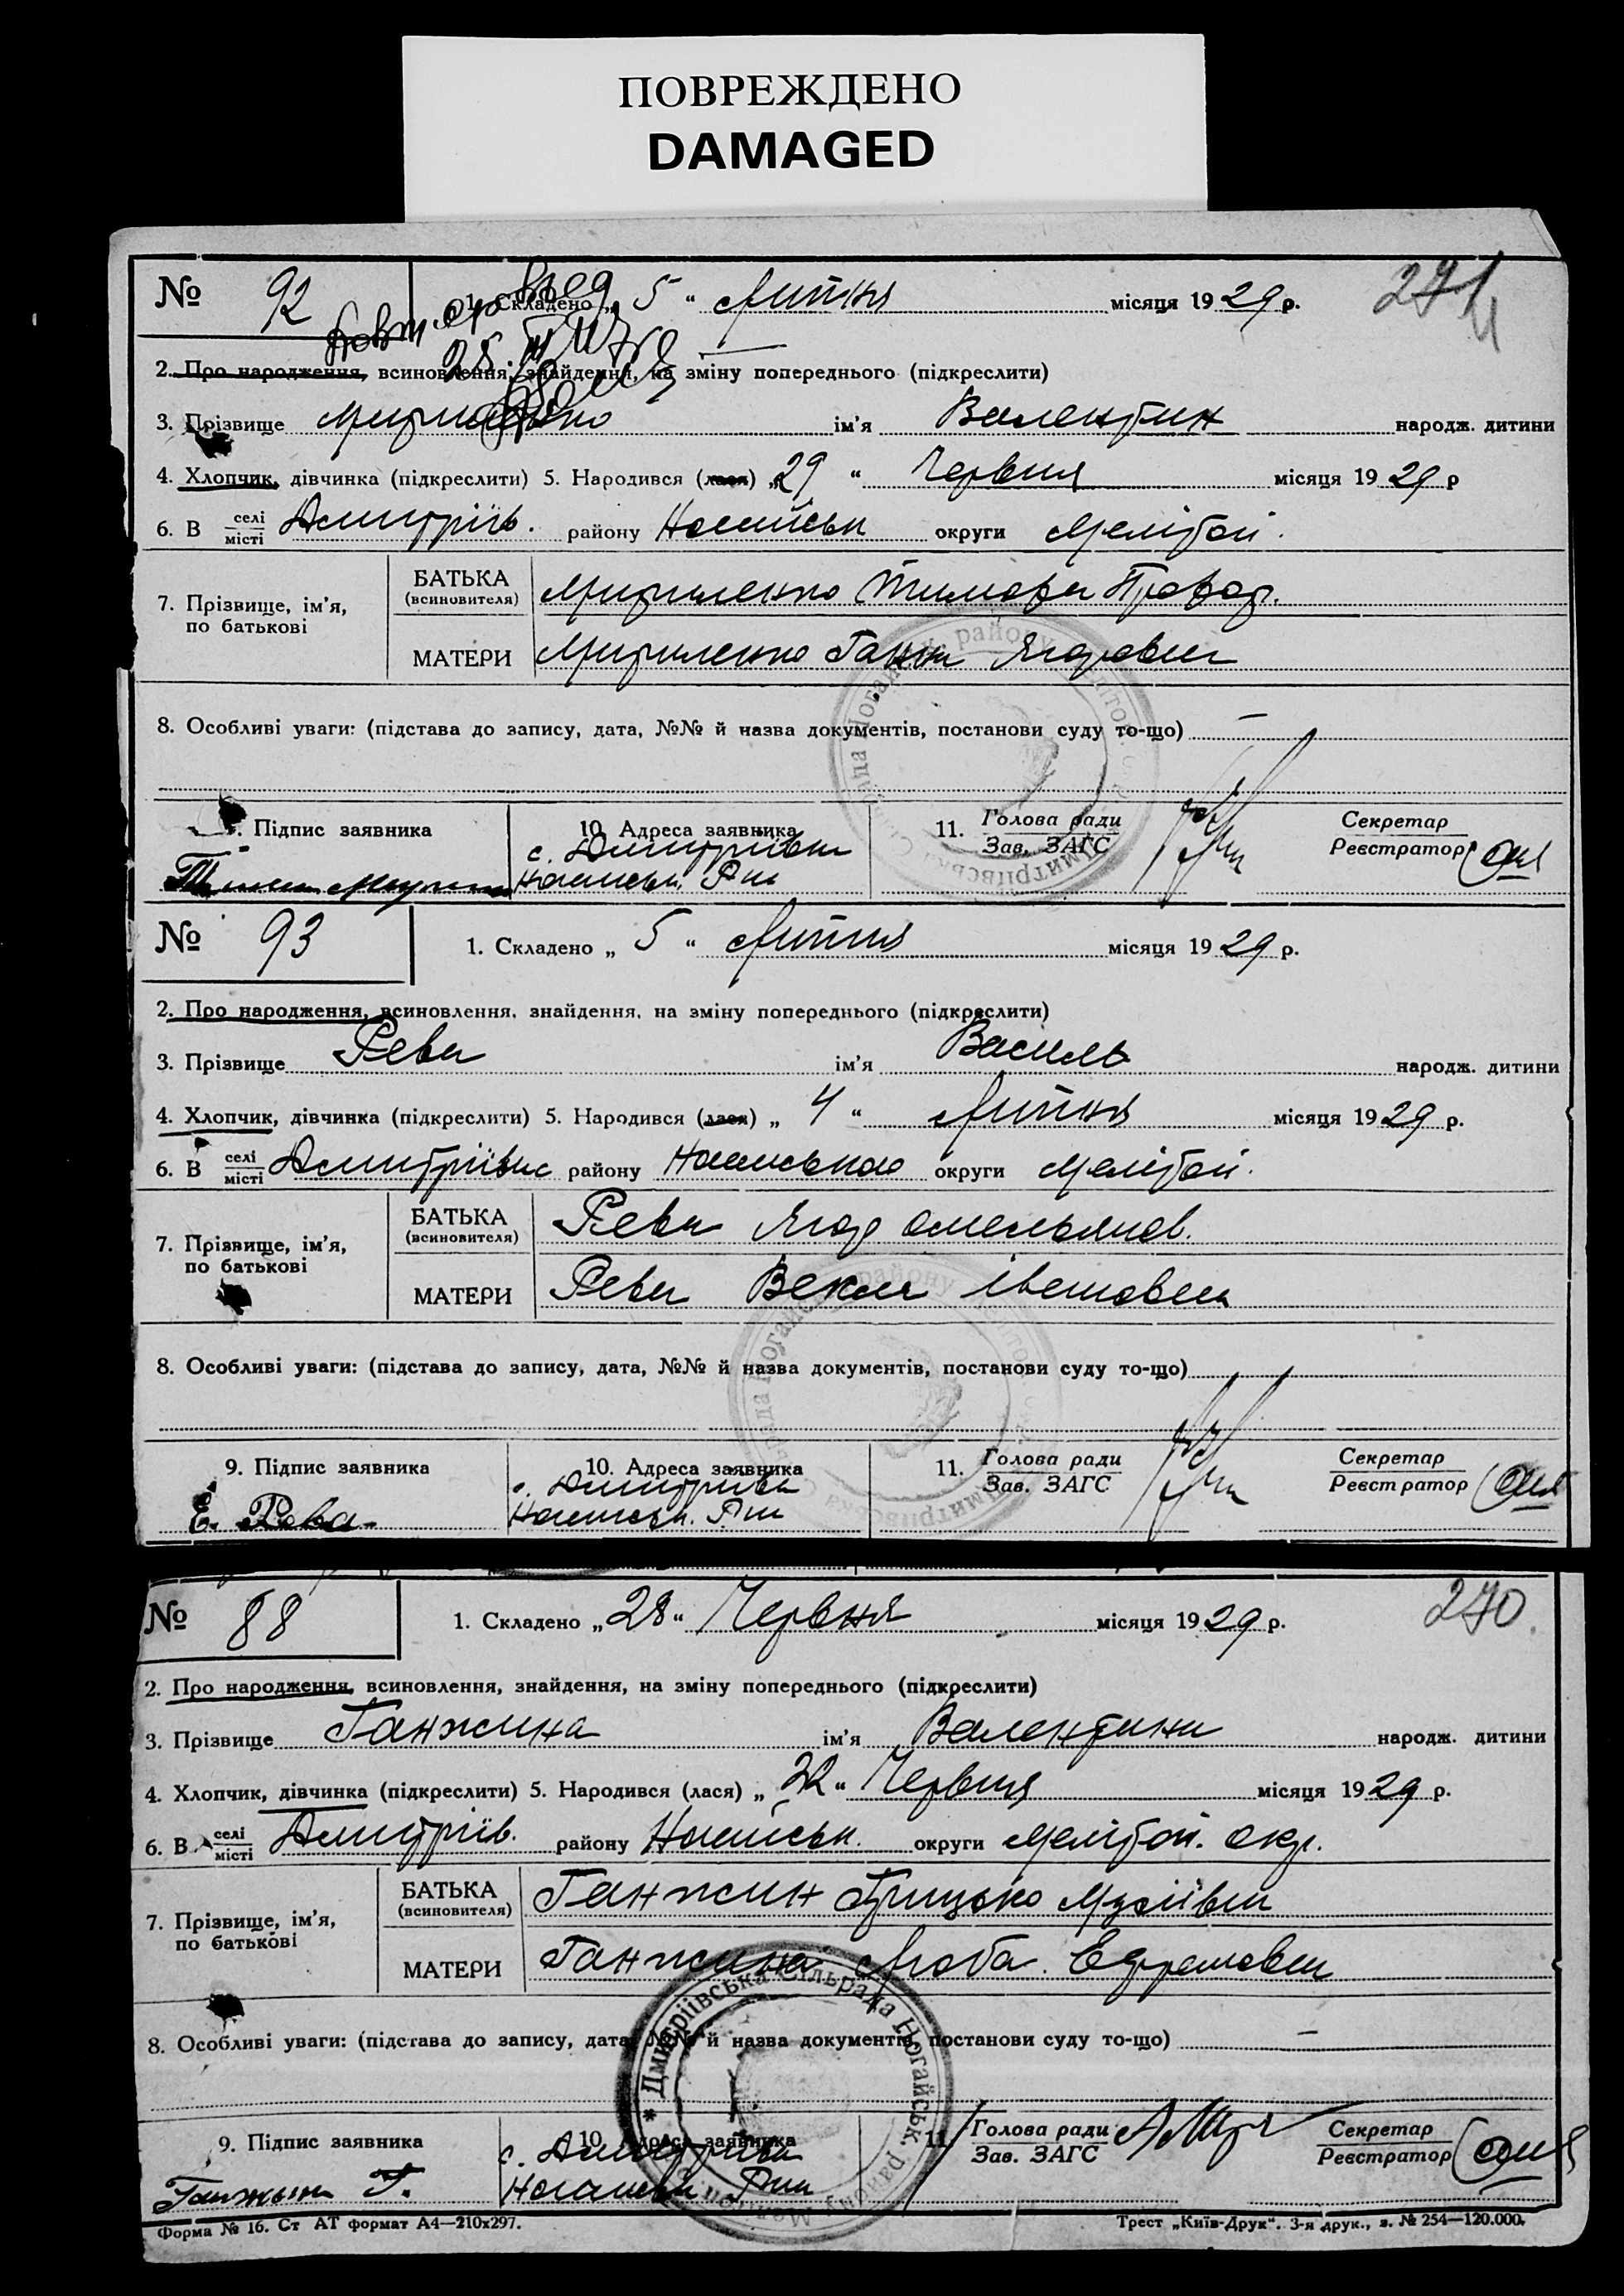 ПОВРЕЖДЕНО
DAMAGED
№ 92 1. Складено „ 5 “ Липня місяця 19 29 р. 271
2. Про народження, всиновлення, знайдення, на зміну попереднього (підкреслити)
3. Прізвище ім'я Валентин народж. дитини
4. Хлопчик, дівчинка (підкреслити) 5. Народився (лася) „ 29 “ Червня місяця 19 29 р
6. В селі місті Дмитрів. району Ногайськ округи Мелітоп.
7. Прізвище, ім'я, по батькові
БАТЬКА (всиновителя)
МАТЕРИ Ганна Ягоровна
8. Особливі уваги: (підстава до запису, дата, №№ й назва документів, постанови суду то-що) —
Підпис заявника 10. Адреса заявника 11. Голова ради Зав. ЗАГС Секретар Реєстратор
с. Дмитрівки
Ногайськ. Р-ну
№ 93 1. Складено „ 5 “ Липня місяця 19 29 р.
2. Про народження, всиновлення, знайдення, на зміну попереднього (підкреслити)
3. Прізвище Рева ім'я Василь народж. дитини
4. Хлопчик, дівчинка (підкреслити) 5. Народився (лася) „ 4 “ Липня місяця 19 29 р.
6. В селі місті Дмитрівка району Ногайського округи Мелітоп.
7. Прізвище, ім'я, по батькові
БАТЬКА (всиновителя) Рева Ягор Омельянов.
МАТЕРИ Рева Векла Івановна
8. Особливі уваги: (підстава до запису, дата, №№ й назва документів, постанови суду то-що)
9. Підпис заявника 10. Адреса заявника 11. Голова ради Зав. ЗАГС Секретар Реєстратор
Е. Рева с. Дмитрівки
Ногайськ. Р-ну
№ 88 1. Складено „ 28 “ Червня місяця 19 29 р. 270
2. Про народження, всиновлення, знайдення, на зміну попереднього (підкреслити)
3. Прізвище Ганжина ім'я Валентина народж. дитини
4. Хлопчик, дівчинка (підкреслити) 5. Народився (лася) „ “ Червня місяця 19 29 р.
6. В селі місті Дмитрів. району Ногайськ. округи Мелітоп. окр.
7. Прізвище, ім'я, по батькові
БАТЬКА (всиновителя) Ганжин Грицько
МАТЕРИ Ганжина Люба Ефремовна
* Дмитріївська Сільрада Ногайськ. району
8. Особливі уваги: (підстава до запису, дата, №№ й назва документів, постанови суду то-що) —
9. Підпис заявника 10. Адреса заявника 11. Голова ради Зав. ЗАГС Секретар Реєстратор
Ганжын Г. с. Дмитрівки
Ногайськ. Р-ну
Форма № 16. Ст АТ формат А4—210х297. Трест „Київ-Друк“. 3-я друк., з. № 254—120.000.